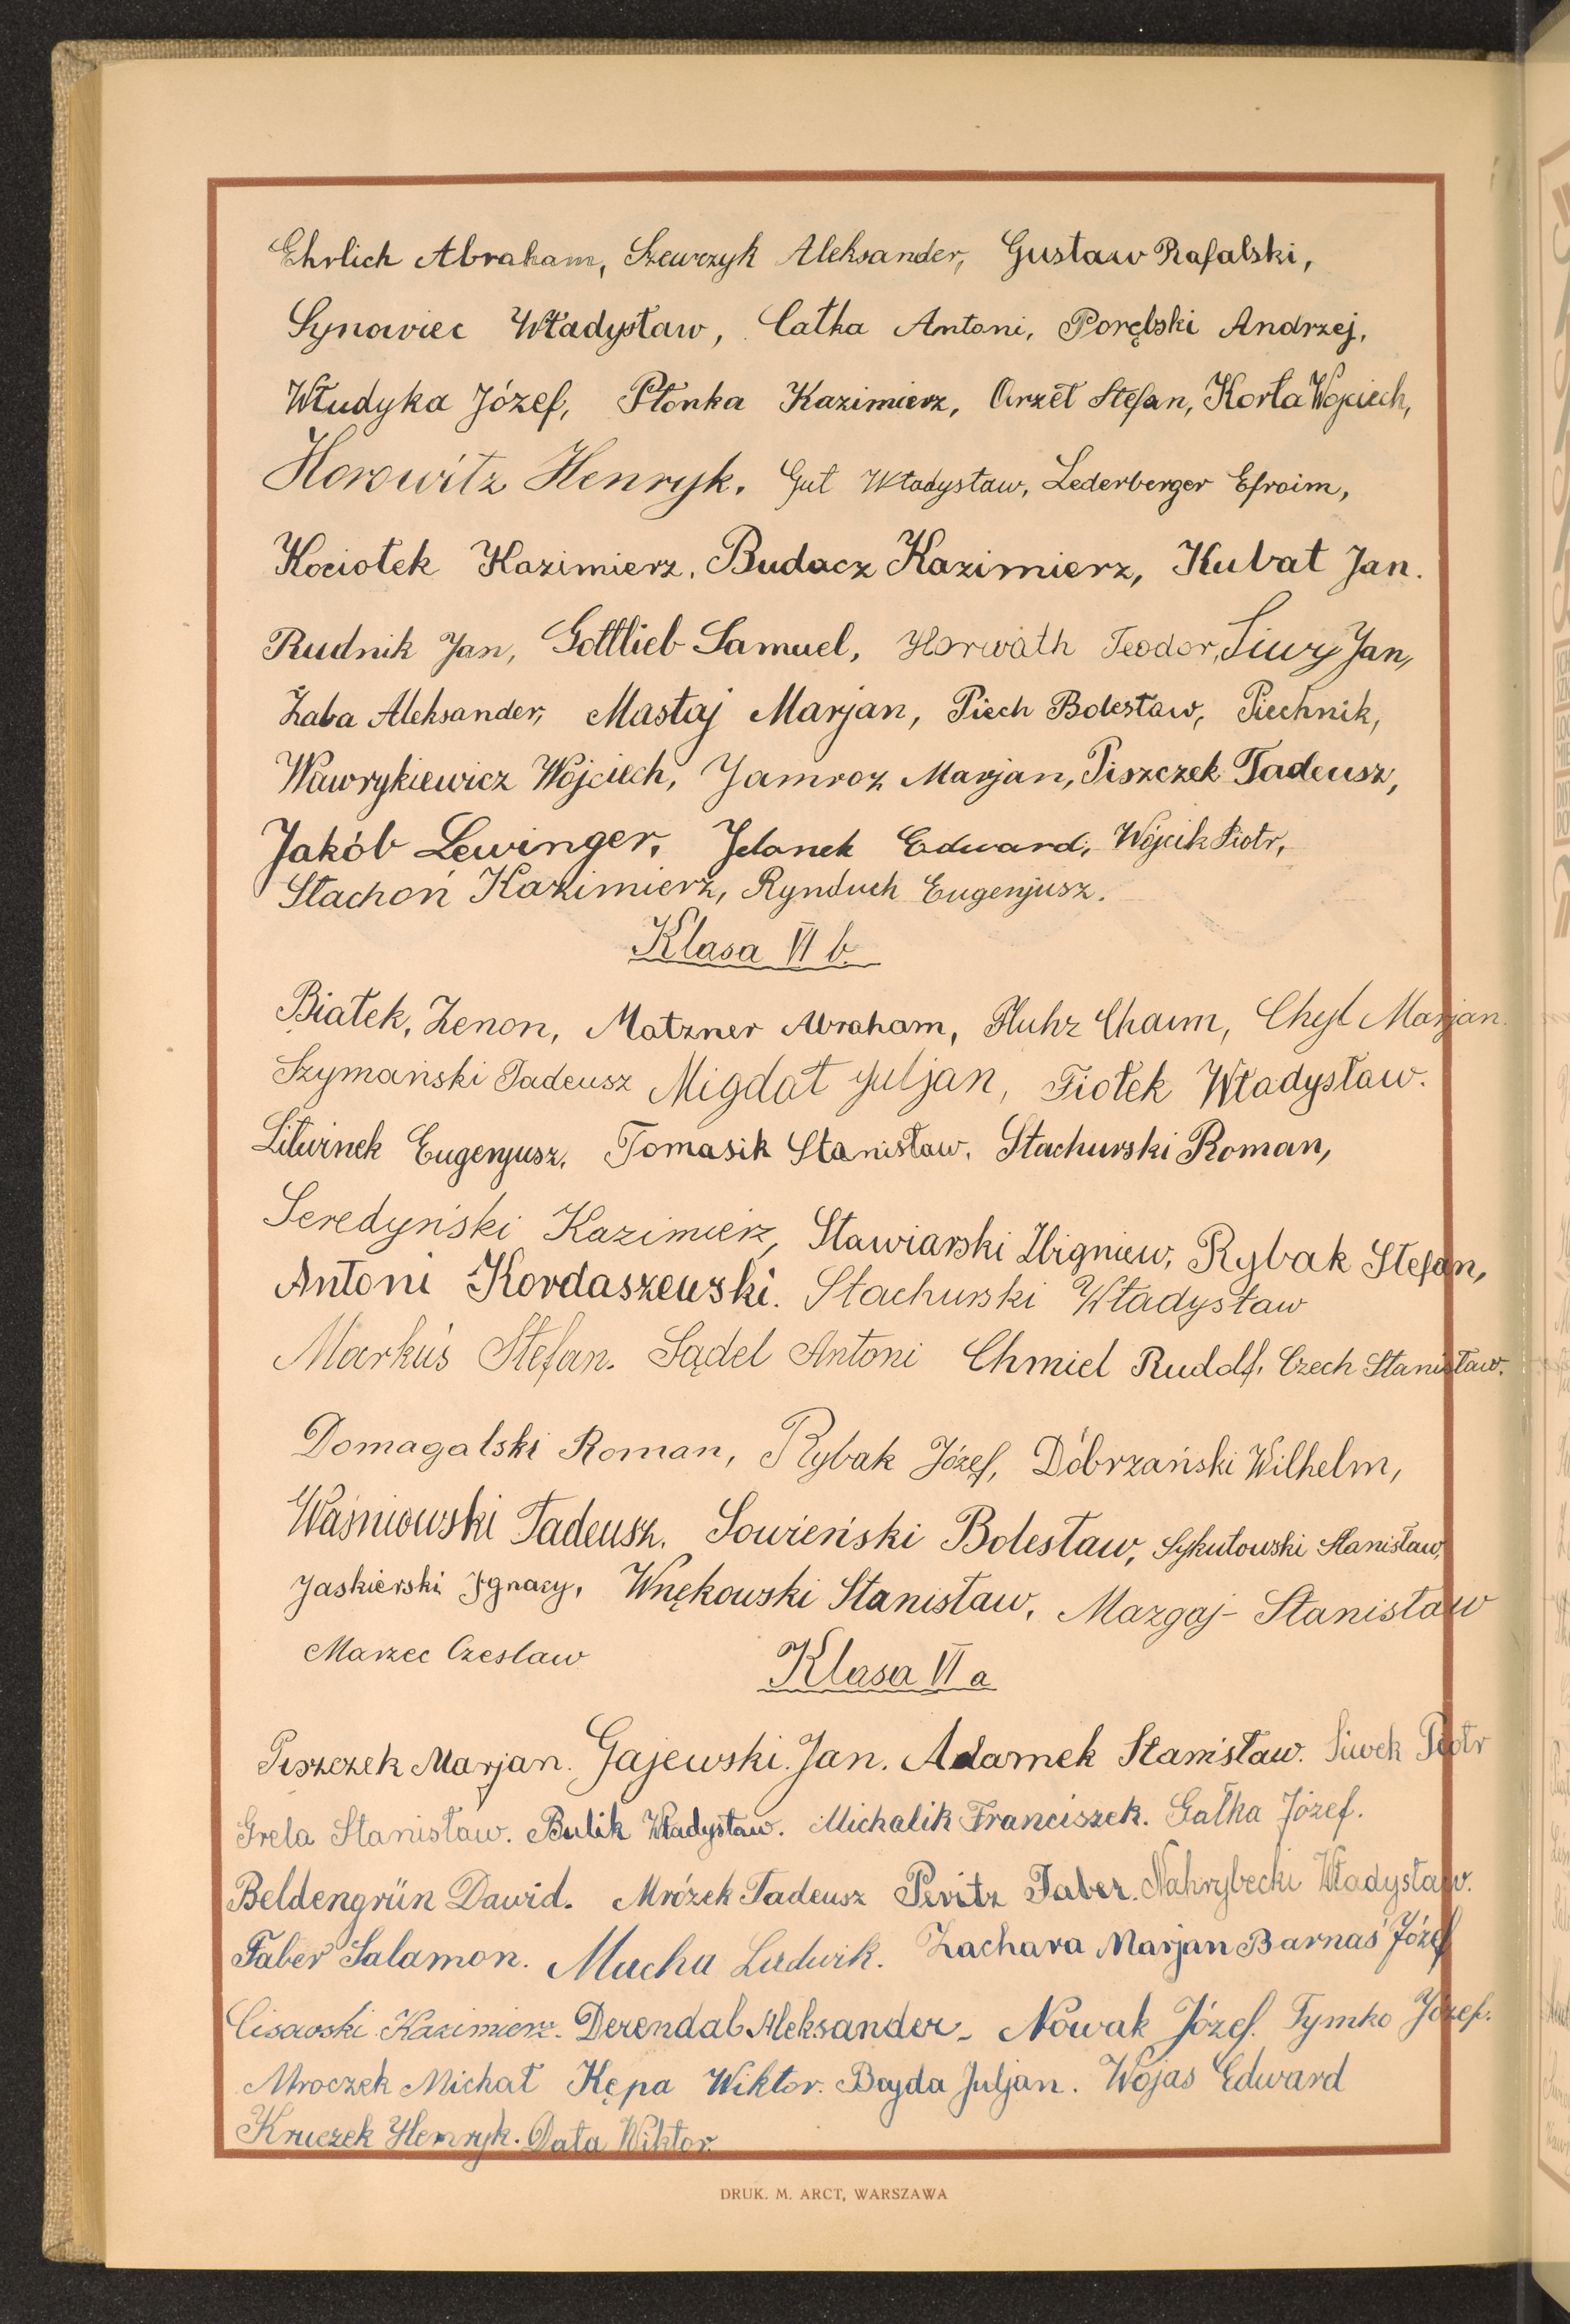 Ehrlich Abraham, Szewczyk Aleksander, Gustaw Rafalski,
Synowiec Władysław, Całka Antoni, Porębski Andrzej,
Włudyka Józef, Płonka Kazimierz, Orzeł Stefan, Korta Wojciech,
Horowitz Henryk. Gut Władysław, Lederberger Efroim,
Kociołek Kazimierz, Budacz Kazimierz, Kubat Jan.
Rudnik Jan, Gottlieb Samuel, Horwáth Teodor, Siwy Jan,
Żaba Aleksander, Mastaj Marjan, Piech Bolesław, Piechnik,
Wawrykiewicz Wojciech, Jamroz Marjan, Piszczek Tadeusz,
Jakób Lewinger, Jelonek Edward, Wójcik Piotr,
Stachoń Kazimierz, Rynduch Eugenjusz.
Klasa VI b.
Białek, Zenon, Matzner Abraham, Fluhr Chaim, Chyl Marjan.
Szymański Tadeusz Migdał Juljan, Fiołek Władysław.
Litwinek Eugenjusz, Tomasik Stanisław. Stachurski Roman,
Seredyński Kazimierz, Stawiarski Zbigniew, Rybak Stefan,
Antoni Kordaszewski. Stachurski Władysław
Markuś Stefan. Sądel Antoni Chmiel Rudolf, Czech Stanisław.
Domagalski Roman, Rybak Józef, Dobrzański Wilhelm,
Waśniowski Tadeusz. Sowieński Bolesław, Sykutowski Stanisław,
Jaskierski Ignacy, Wnękowski Stanisław, Mazgaj- Stanisław
Marzec Czeslaw
Klasa VI a
Piszczek Marjan. Gajewski Jan. Adamek Stanisław. Siwek Piotr
Grela Stanisław. Bulik Władysław. Michalik Franciszek. Gałka Józef.
Beldengrün Dawid. Mrózek Tadeusz Peritz Faber. Nahrybecki Władysław.
Faber Salamon. Mucha Ludwik. Zachara Marjan Barnaś Józef
Cisowski Kazimierz. Derendal Aleksander- Nowak Józef. Tymko Józef.
Mroczek Michał Kępa Wiktor. Bayda Juljan. Wojas Edward
Kruczek Henryk. Data Wiktor.
DRUK. M. ARCT, WARSZAWA